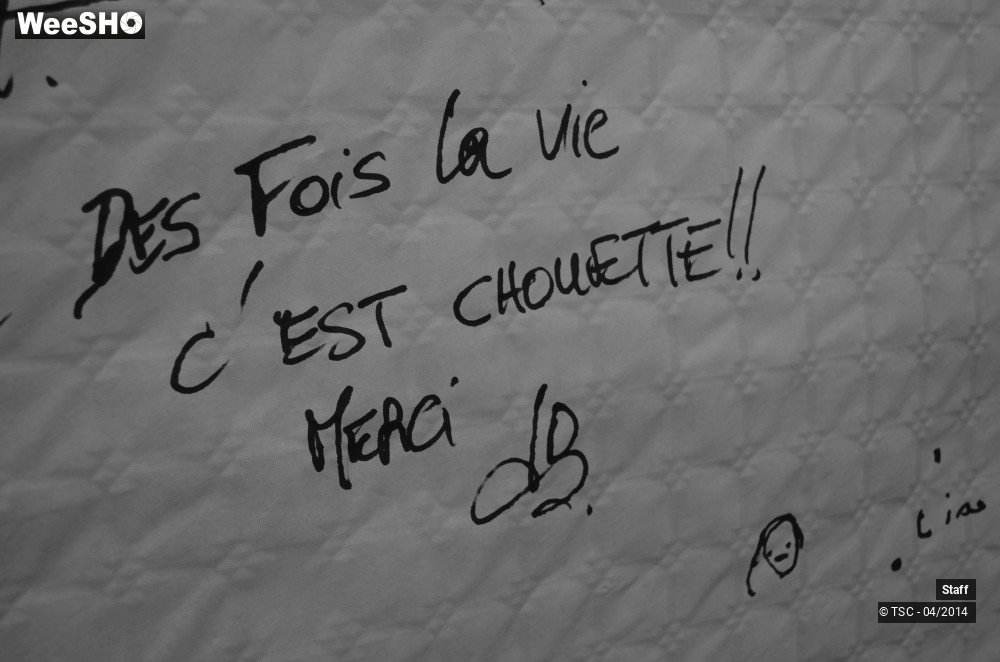 WeeSHO
DES FOIS la vie
C'EST CHOUETTE!!
MERCI
Staff
© TSC - 04/2014